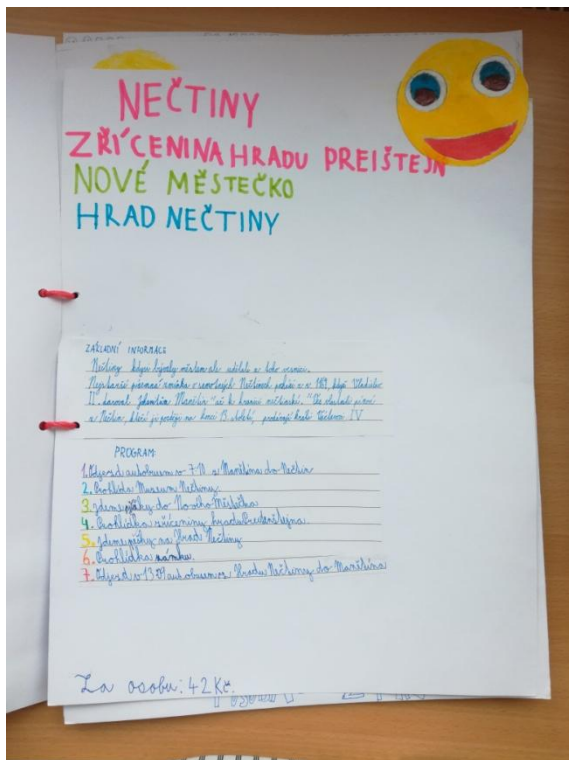 NEČTINY
ZŘÍCENINA HRADU PREIŠTEJN
NOVÉ MĚSTEČKO
HRAD NEČTINY
ZÁKLADNÍ INFORMACE
Nečtiny kdysi bývaly městem ale udělala se z toho vesnice.
Nejstarší písemná zmínka o samotných Nečtinech pochází z r. 1169, když Vladislav
II. daroval Manětín "až k hranici nečtinské."
a Nečtin, kteří je později na konci 13. století, postoupili králi Václavu IV
PROGRAM:
1. Odjezd autobusem v 7:11 z Manětína do Nečtin
2. Prohlídka Muzeum Nečtiny
3. Jdeme pěšky do Nového Městečka
4. Prohlídka zříceniny hradu Preitenštejna.
5. Jdeme pěšky na Hrad Nečtiny
6. Prohlídka zámku.
7. Odjezd v 13:09 autobusem z Hradu Nečtiny do Manětína
Za osobu: 42 Kč.